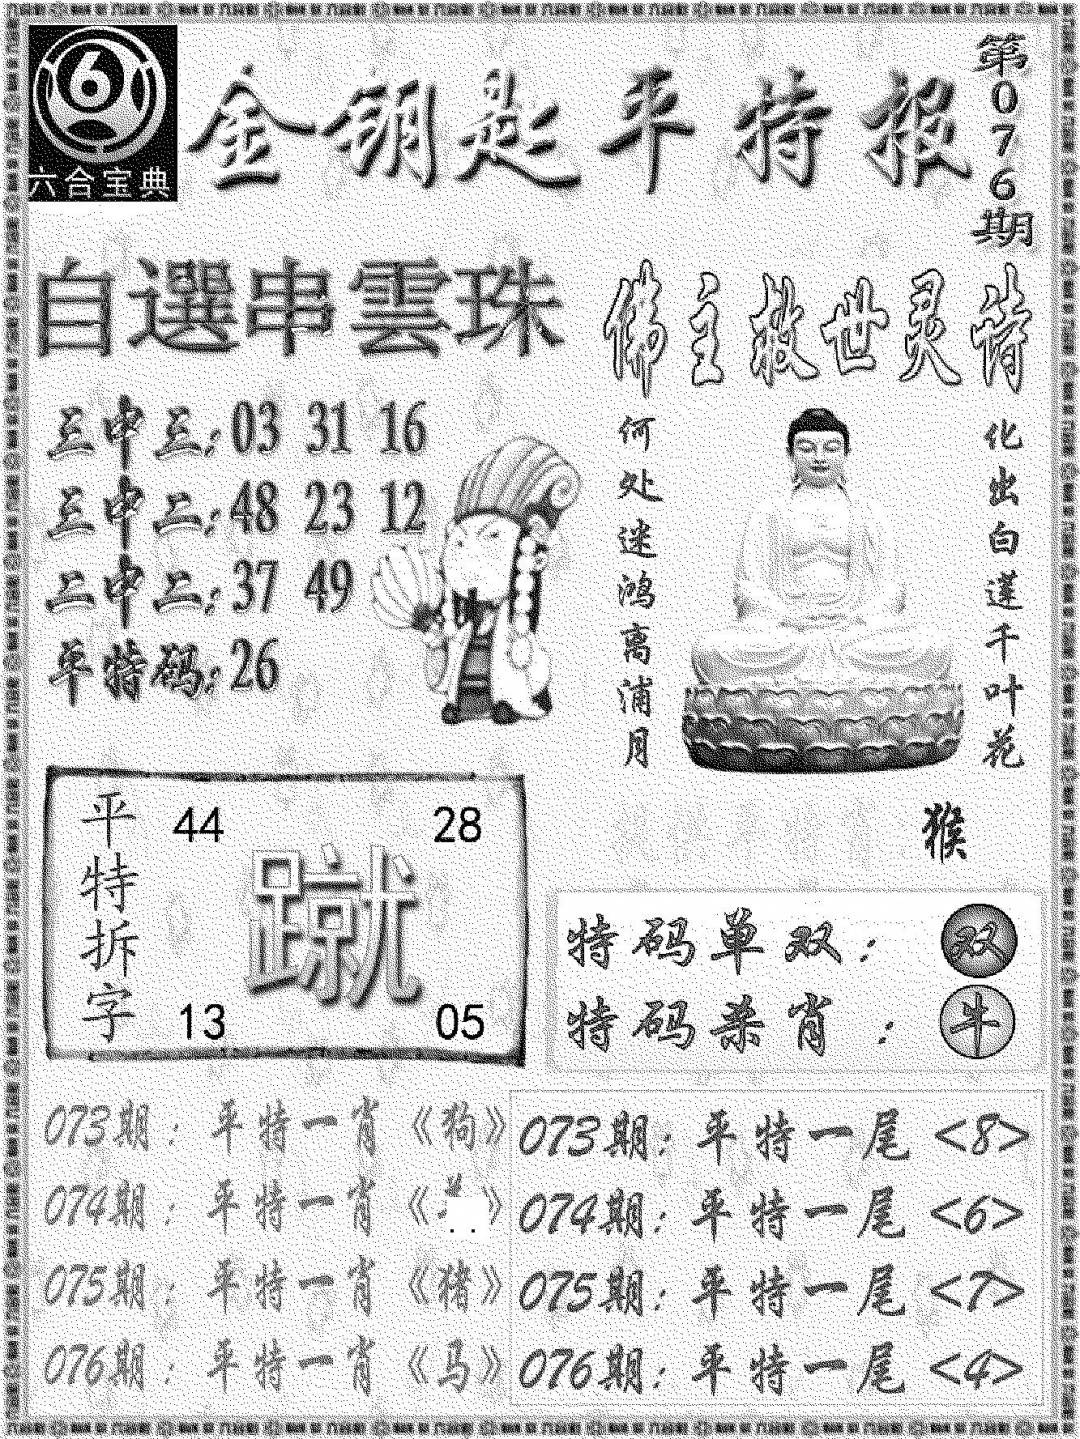 六合宝典
金钥匙平特报
第076期
自選串雲珠
三中三:03 31 16
三中二:48 23 12
二中二:37 49
平特码:26
佛主救世灵诗
何处迷鸿离浦月
化出白莲千叶花
猴
平特拆字
44 28
蹴
13 05
特码单双:双
特码杀肖:牛
073期:平特一肖《狗》
074期:平特一肖《 》
075期:平特一肖《猪》
076期:平特一肖《马》
073期:平特一尾<8>
074期:平特一尾<6>
075期:平特一尾<7>
076期:平特一尾<4>